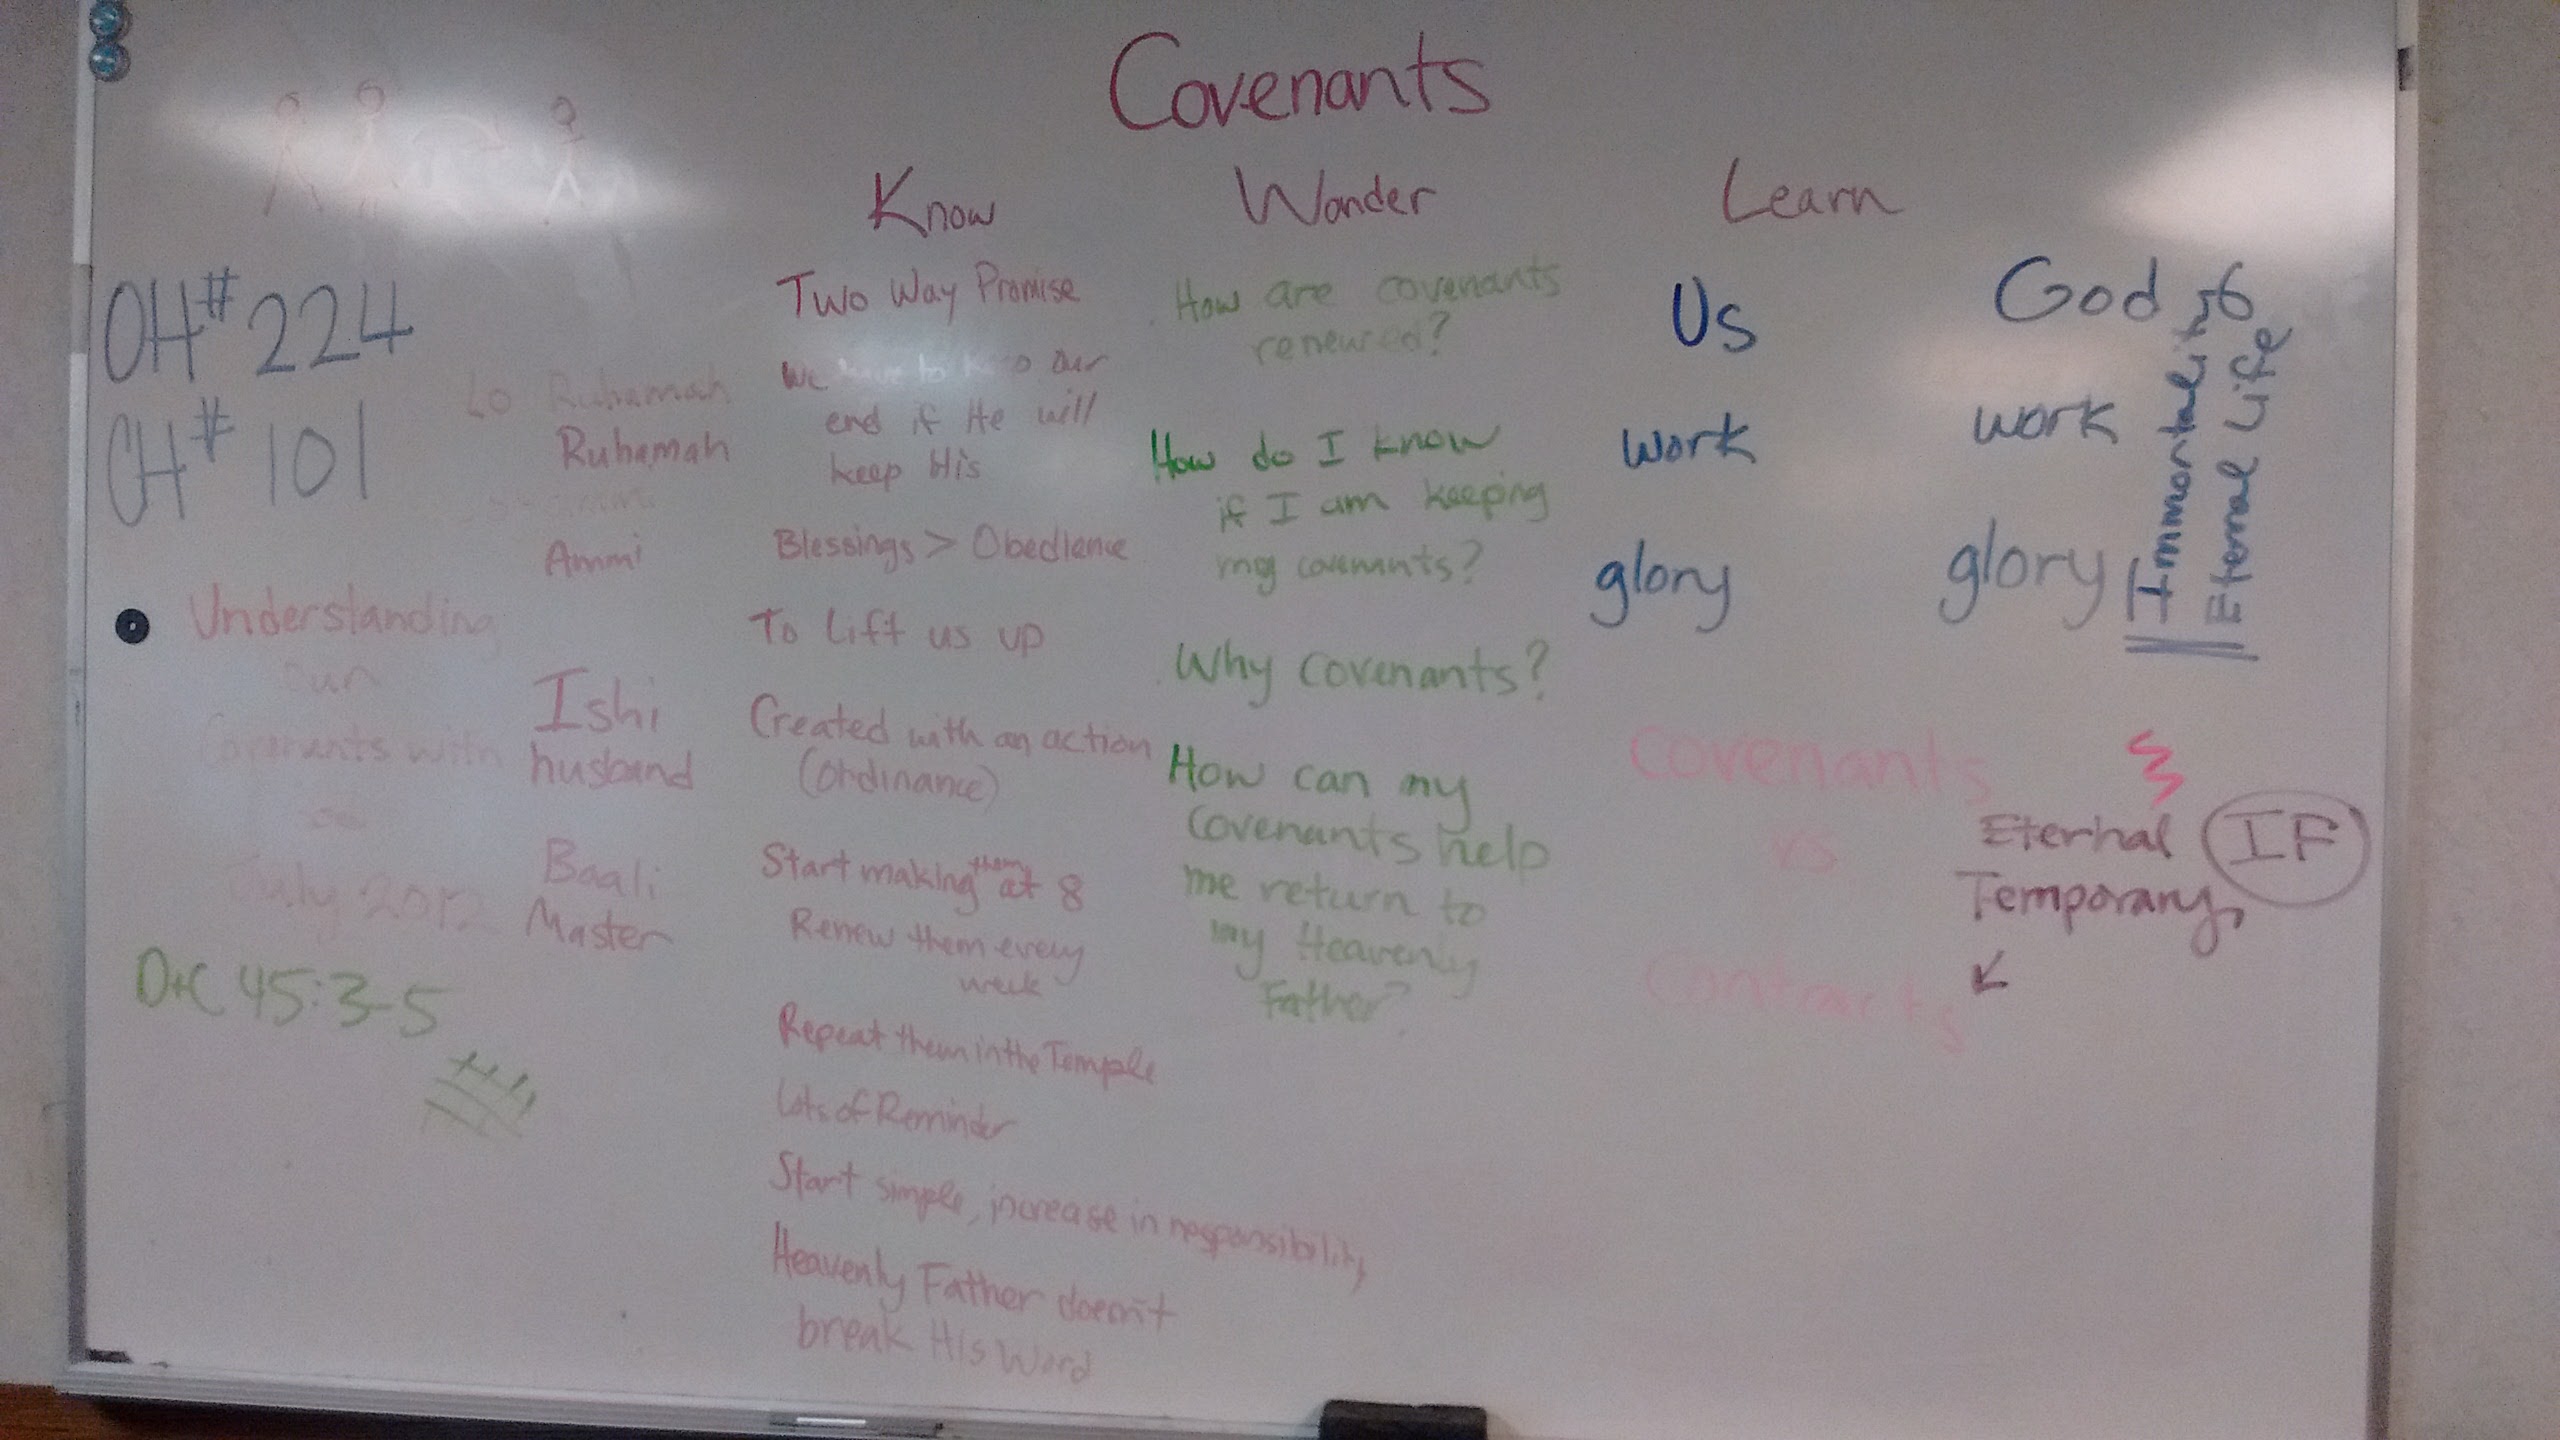 Covenants
Know
Wonder
Learn
OH# 224
CH# 101
Lo Ruhamah
Ruhamah
Ammi
Understanding
our
Covenants with
July 2012
D+C 45:3-5
Ishi
husband
Baali
Master
Two Way Promise
We have to keep our
end if He will
keep His
Blessings > Obedience
To Lift us up
Created with an action
(Ordinance)
Start making them at 8
Renew them every
week
Repeat them in the Temple
Lots of Reminder
Start simple, increase in responsibility
Heavenly Father doesn't
break His Word
How are covenants
renewed?
How do I know
if I am keeping
my covenants?
Why covenants?
How can my
Covenants help
me return to
my Heavenly
Father?
Us
work
glory
God
work
glory
Immortality
Eternal Life
covenants
vs
contracts
Eternal IF
Temporary